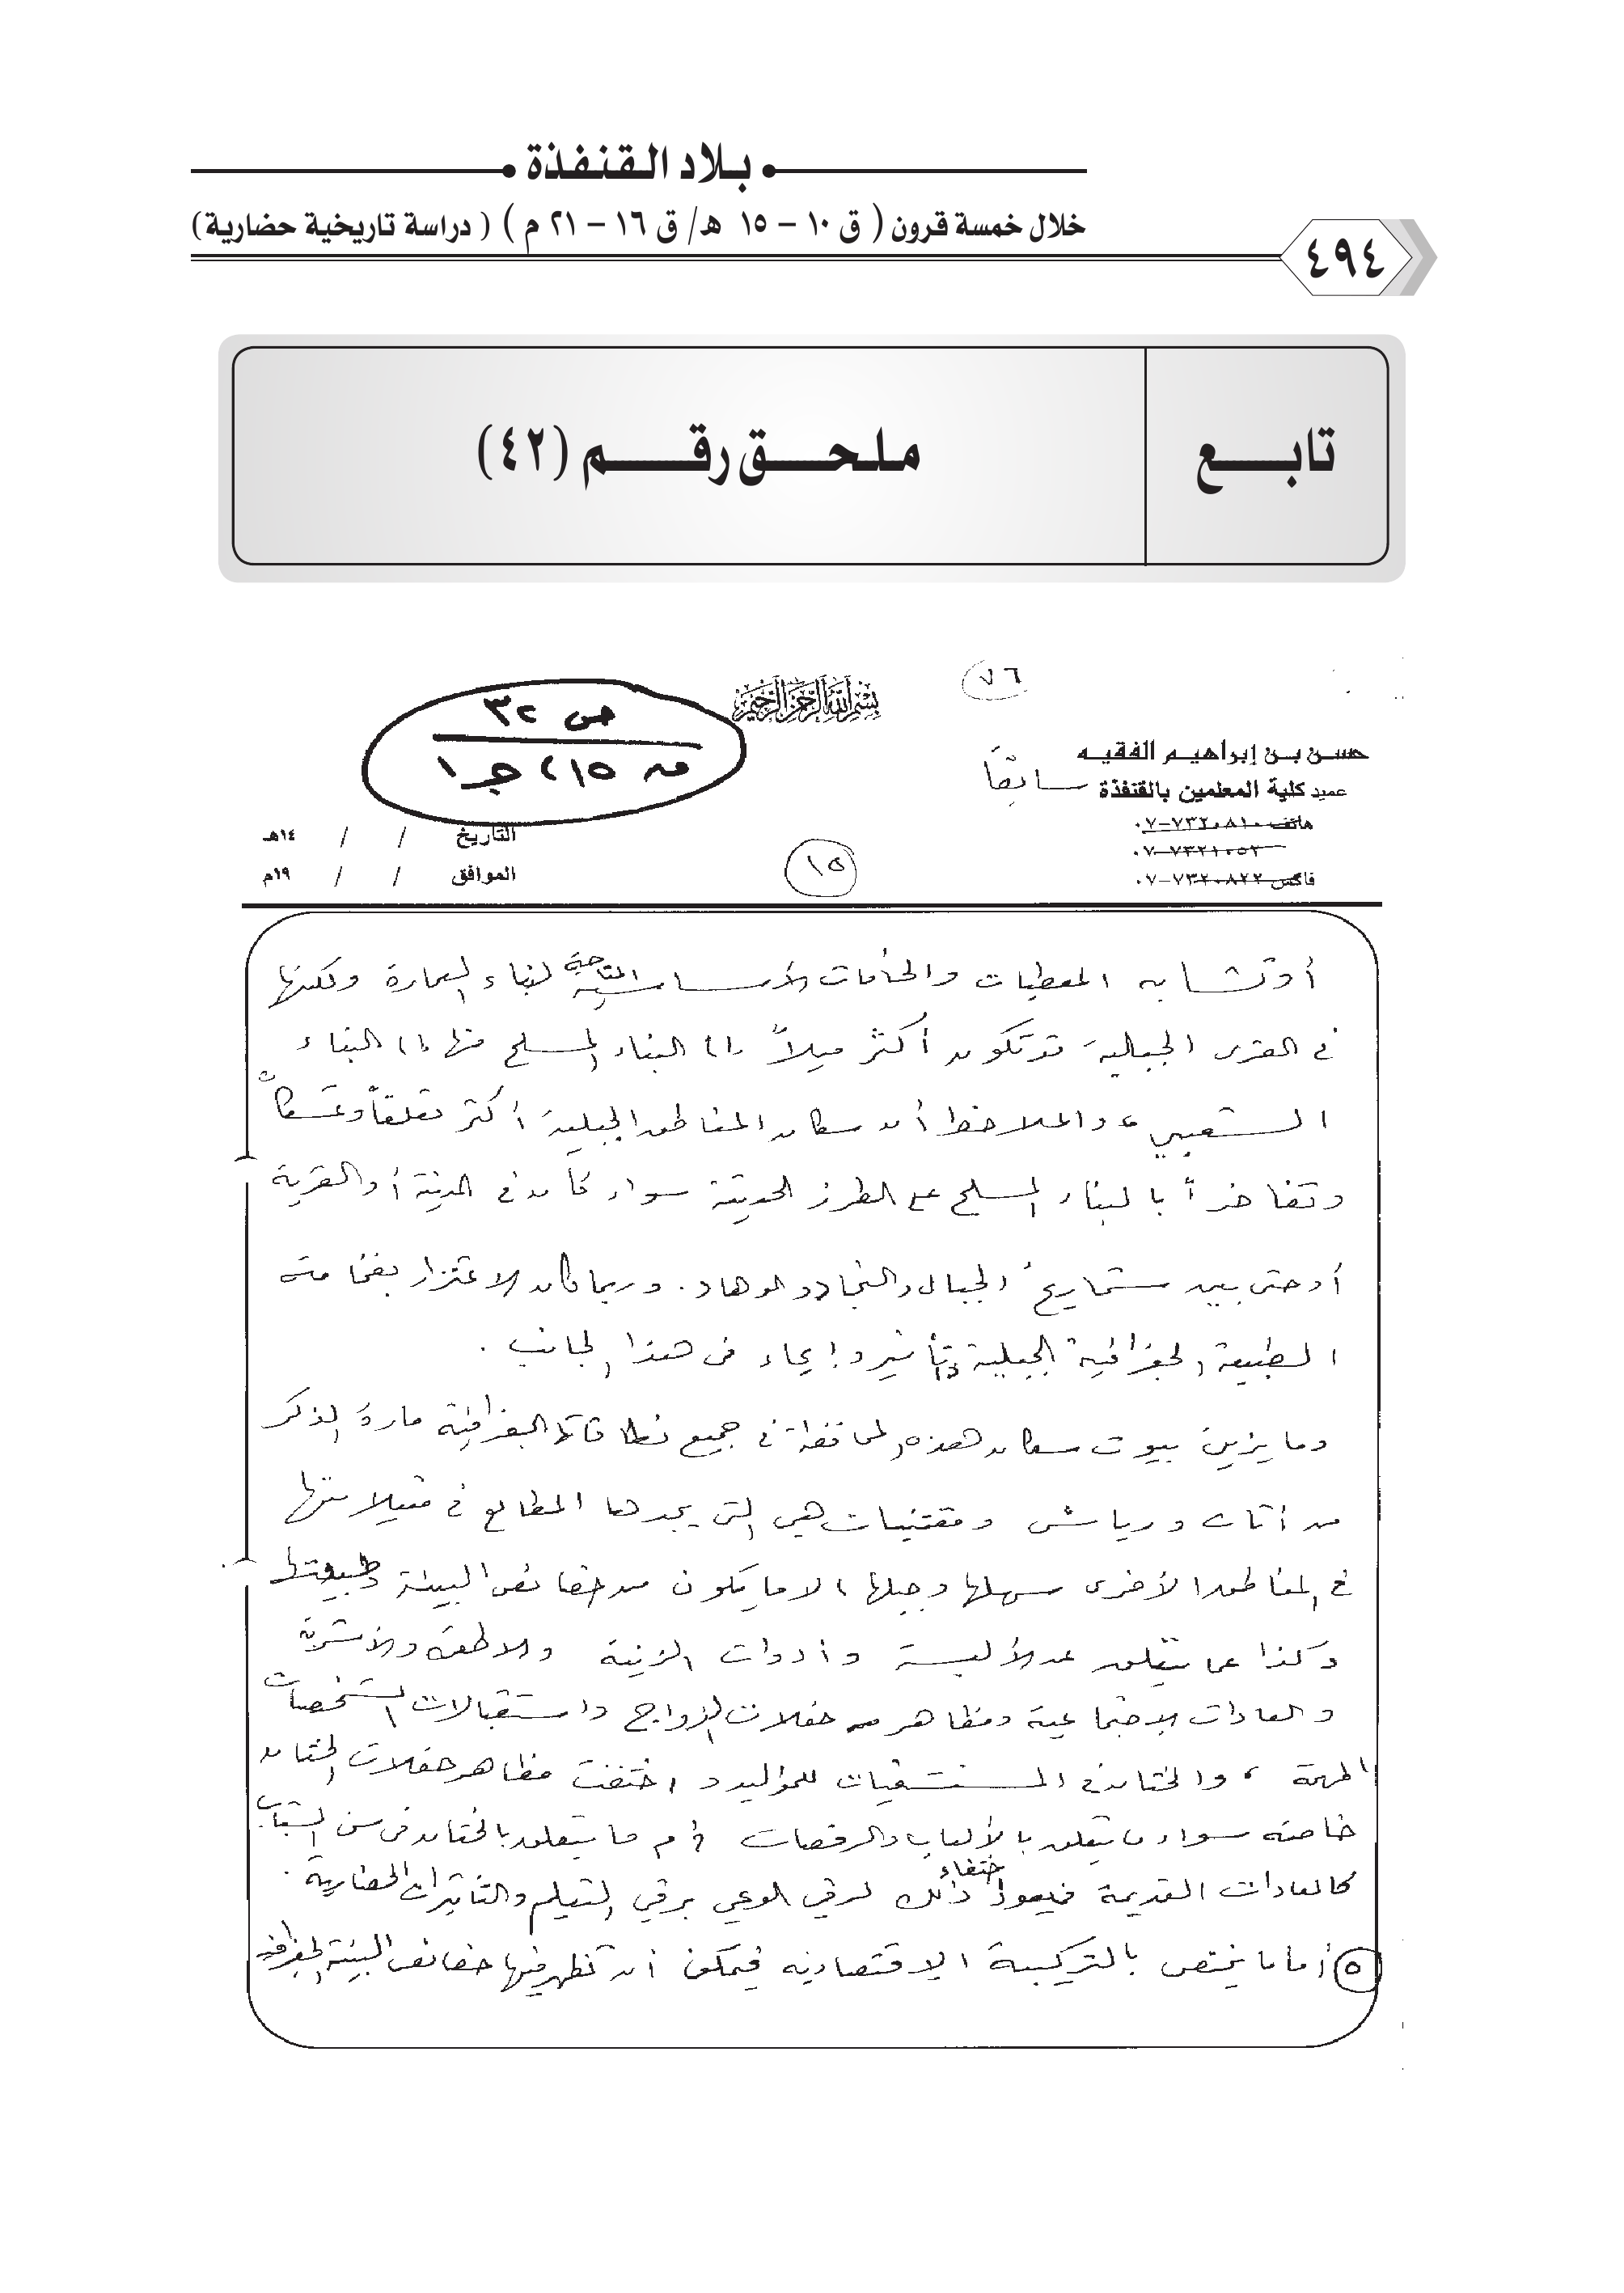 بلاد القنفذة
خلال خمسة قرون ( ق ١٠ – ١٥ هـ/ ق ١٦ – ٢١ م ) ( دراسة تاريخية حضارية)
٤٩٤
تابـــع
ملحـق رقـــم (٤٢)
٧٦
بسم الله الرحمن الرحيم
ص ٣٢
من ٢١٥ جـ١
حسـن بـن إبراهيـم الفقيـه
عميد كلية المعلمين بالقنفذة سابقاً
هاتف ٧٣٢٠٨١٠-٠٧
٧٣٢١٠٥٢-٠٧
فاكس ٧٣٢٠٨٢٢-٠٧
التاريخ / / ١٤هـ
الموافق / / ١٩م
١٥
أو تشابه المعطيات والخامات الأساسية المتاحة لبناء العمارة ولكنها
في القرى الجبلية قد تكون أكثر ميلاً إلى البناء المسلح منها إلى البناء
الشعبي، والملاحظ أن سكان المناطق الجبلية أكثر تعلقاً وتمسكاً
وتفاخراً بالبناء المسلح على الطرز الحديثة سواء كان في المدينة أو القرية
أو حتى بين شماريخ الجبال والنجاد والوهاد. وربما كان للاعتزاز بفخامة
الطبيعة الجغرافية الجبلية تأثير وإيحاء في هذا الجانب.
وما يزين بيوت سكان هذه المحافظة في جميع نطاقاتها الجغرافية مارة الذكر
من أثاث ورياش ومقتنيات هي التي يجدها المطالع في مثيلاتها
في المناطق الأخرى سهلها وجبلها، إلا ما يكون من خصائص البيئة وطبيعتها
وكذا عما يتعلق عن الألبسة وأدوات الزينة والأطعمة والأشربة
والعادات الاجتماعية ومظاهر حفلات الزواج واستقبالات الشخصيات
المهمة، والختان في المستشفيات للمواليد واختفت مظاهر حفلات الختان
خاصة سواء ما يتعلق بالألعاب والرقصات أم ما يتعلق بالختان في سن الشباب
كالعادات القديمة فيعود اختفاء ذلك لرقي الوعي برقي التعليم والتأثيرات الحضارية.
٥ أما ما يختص بالتركيبة الاقتصادية فيمكن أن تظهر فيها خصائص البيئة الجغرافية